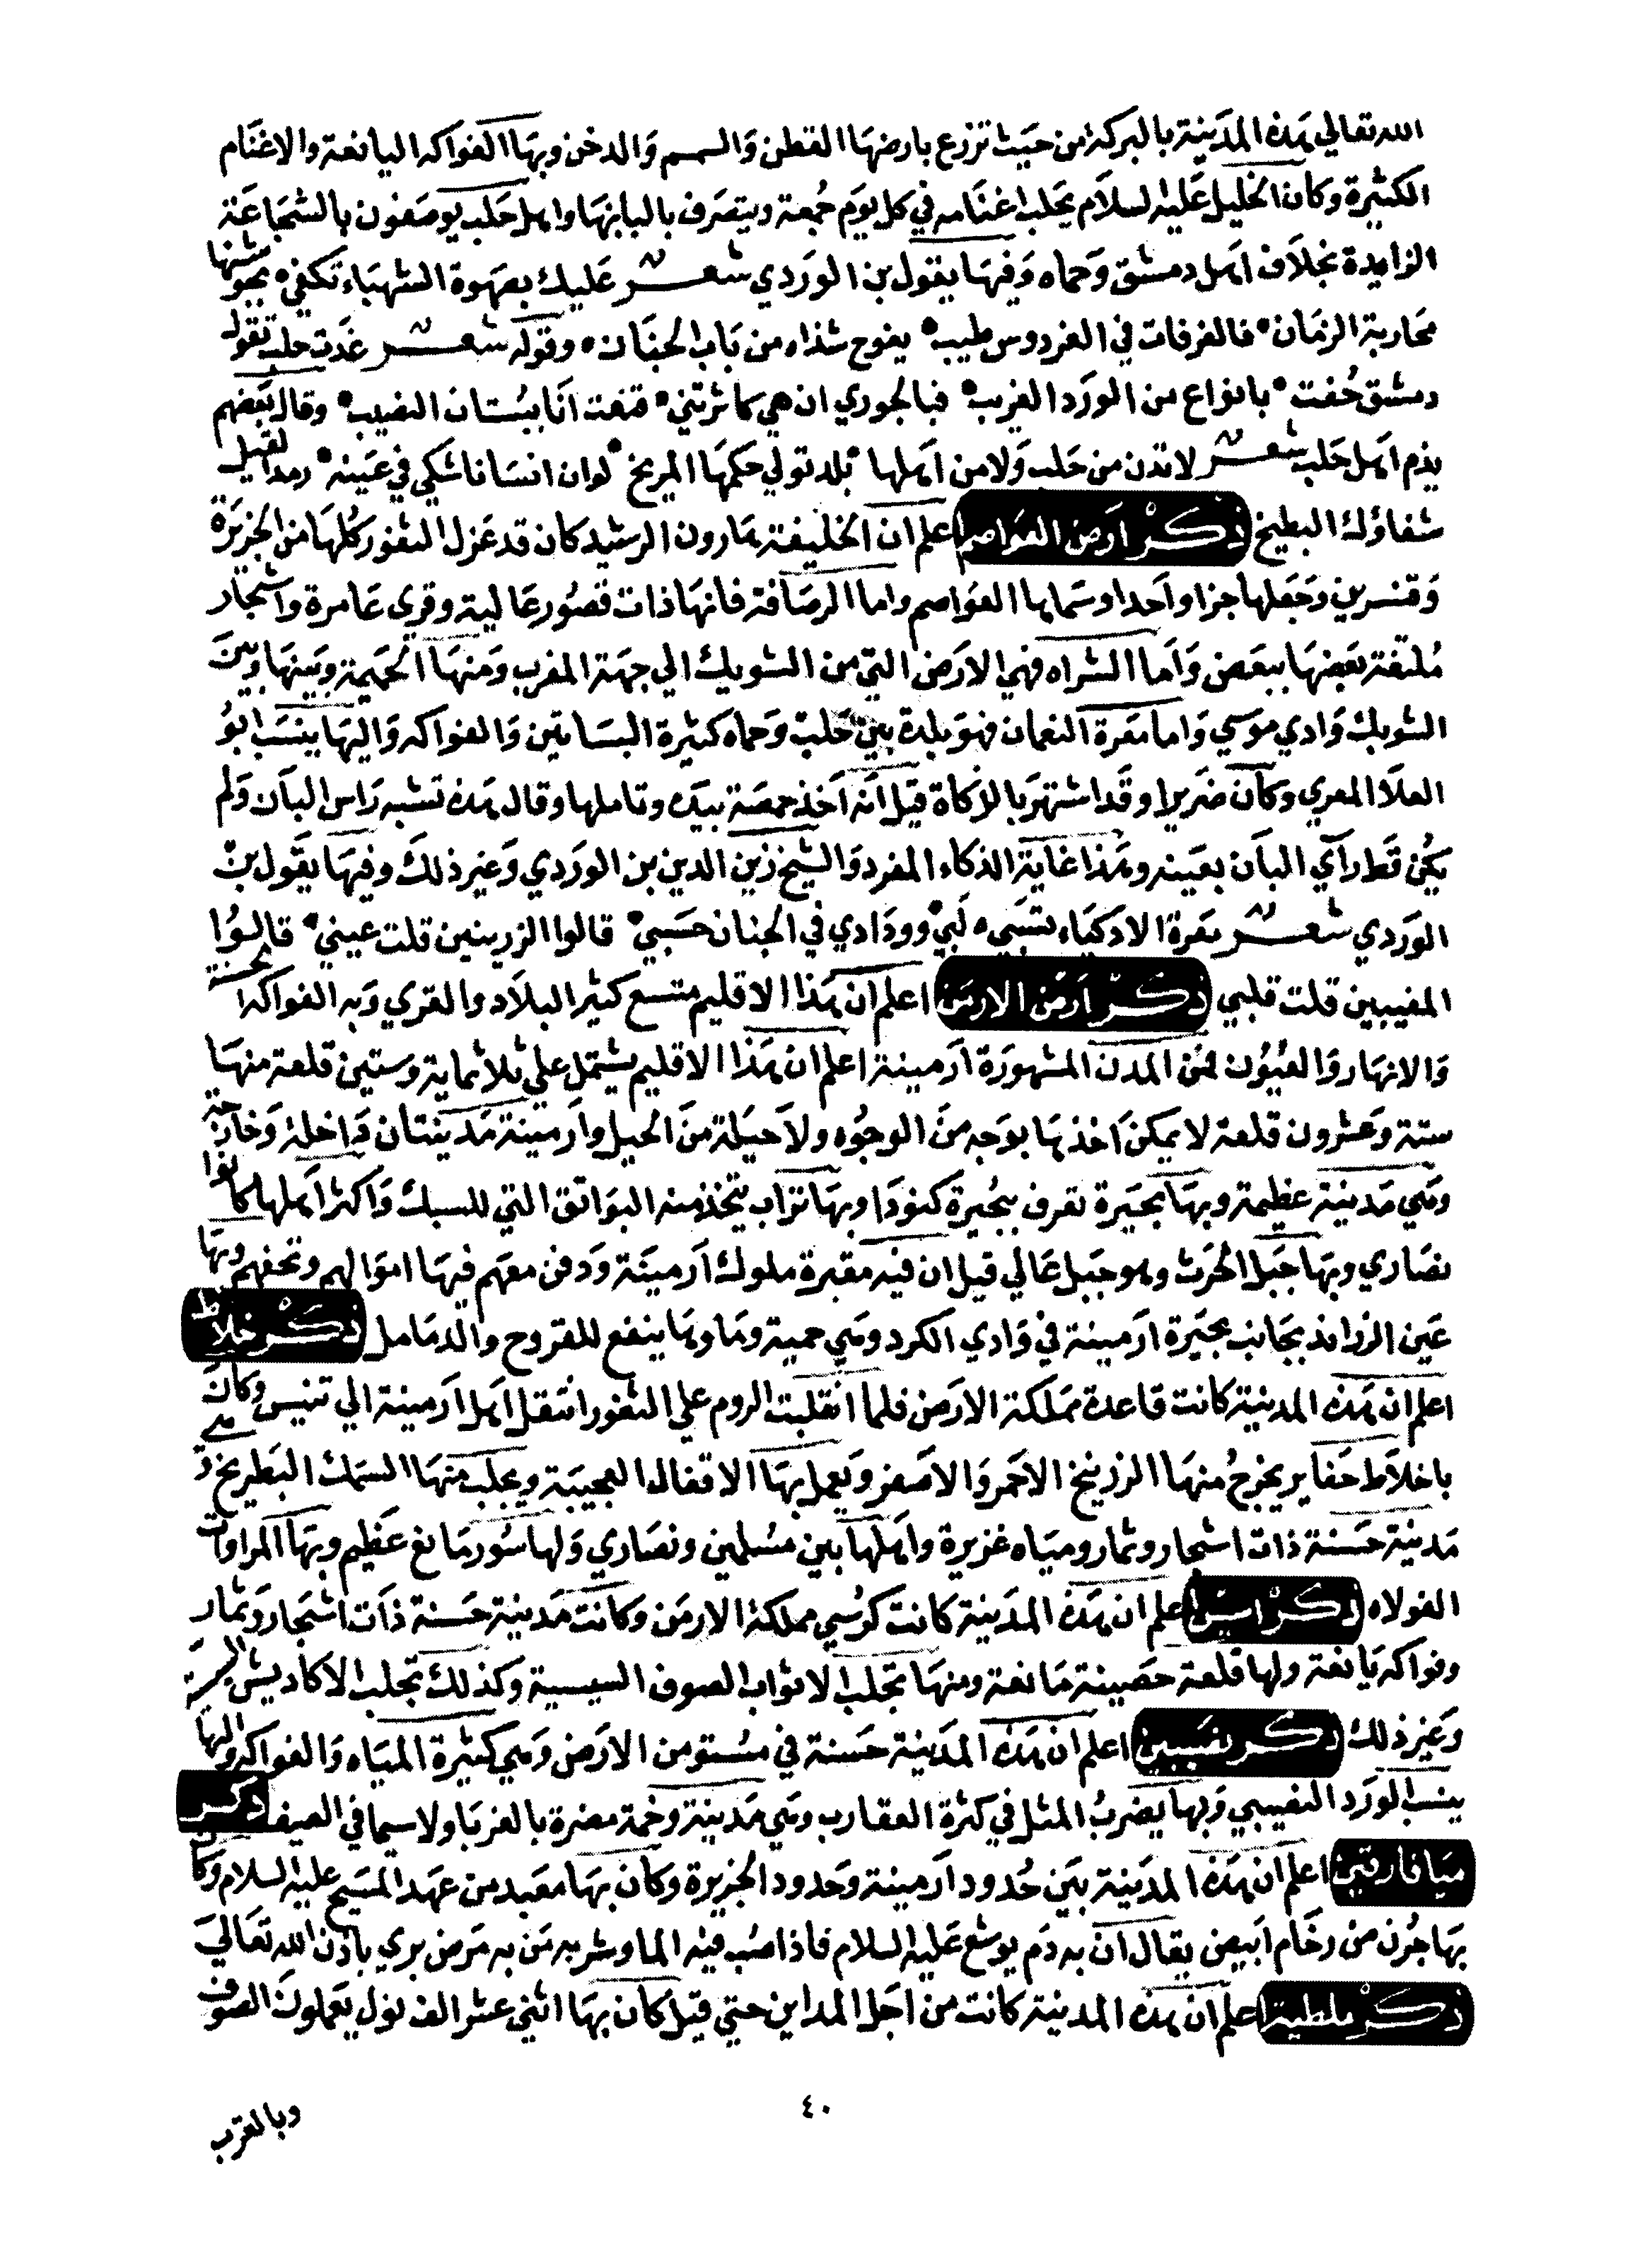 الله تعالي بهذه المدينة بالبركة من حيث تزرع بارضها القطن والسمسم والدخن وبها الفواكه اليانعة والاغنام
الكثيرة وكان الخليل عليه السلام يحلب اغنامه في كل يوم جمعة ويتصرف بالبانها واهل حلب يوصفون بالشجاعة
الزايدة بخلاف اهل دمشق وحماه وفيها يقول بن الوردي شعر عليك بصهوة الشهباء تكفي بجوشنها
محاربة الزمان فالغرفات في الفردوس طيب يفوح شذاه من باب الجنان وقوله شعر غدت حلب تقول
دمشق حفت بانواع من الورد الغريب فبالجوري ان هي كاثرتني قنعت انا ببستان النصيب وقال بعضهم
يذم اهل حلب شعر لا تدن من حلب ولا من اهلها بلد تولي حكمها المريخ لو ان انسانا شكي في عينه رمدا لقيل
شفاؤك البطيخ ذكر ارض العواصم اعلم ان الخليفة هارون الرشيد كان قد عزل الثغور كلها من الجزيرة
وقنسرين وجعلها جزا واحدا وسماها العواصم واما الرصافة فانها ذات قصور عالية وقري عامرة واشجار
ملتفة بعضها ببعض واما الشراه فهي الارض التي من الشوبك الي جهة المغرب ومنها الحميمة وبينها وبين
الشوبك وادي موسي واما معرة النعمان فهو بلدة بين حلب وحماه كثيرة البساتين والفواكه واليها ينسب ابو
العلا المعري وكان ضريرا وقد اشتهر بالزكاة قيل انه اخذ حمصة بيده وتاملها وقال هذه تشبه راس البان ولم
يكن قط رآي البان بعينه وهذا غاية الذكاء المفرد والشيخ زين الدين بن الوردي وغير ذلك وفيها يقول بن
الوردي شعر معرة الادكياء تسبي لبي وودادي في الجنان حسبي قالوا الزرينين قلت عيني قالوا
المغيبين قلت قلبي ذكر ارض الارمن اعلم ان هذا الاقليم متسع كثير البلاد والقري وبه الفواكه الحسنة
والانهار والعيون فمن المدن المشهورة ارمينة اعلم ان هذا الاقليم يشتمل علي ثلاثماية وستين قلعة منها
ستة وعشرون قلعة لا يمكن اخذها بوجه من الوجوه ولا حيلة من الحيل وارمينة مدينتان داخلة وخارجة
وهي مدينة عظيمة وبها بحيرة تعرف ببحيرة كنودا وبها تراب يتخذ منه البواتق التي للسبك واكثر اهلها كانوا
نصاري وبها جبل الحرث وهو جبل عالي قيل ان فيه مقبرة ملوك ارمينة ودفن معهم فيها اموالهم وتحفهم وبها
عين الزراند بجانب بحيرة ارمينة في وادي الكرد وهي حمية وماوها ينفع للقروح والدمامل ذكر خلاط
اعلم ان هذه المدينة كانت قاعدة مملكة الارض فلما انقلبت الروم علي الثغور انتقل اهل ارمينة الي تنيس وكان
باخلاط حفاير يخرج منها الزرنيخ الاحمر والاصفر ويعمل بها الاقفال العجيبة ويجلب منها السمك البطريخ وهي
مدينة حسنة ذات اشجار وثمار ومياه غزيرة واهلها بين مسلمين ونصاري ولها سور مانع عظيم وبها المراوات
الفولاه ذكر سيس اعلم ان هذه المدينة كانت كرسي مملكة الارمن وكانت مدينة حسنة ذات اشجار وثمار
وفواكه يانعة ولها قلعة حصينة مانعة ومنها تجلب الاثواب الصوف السيسية وكذلك تجلب الاكاديش
وغير ذلك ذكر نصيبين اعلم ان هذه المدينة حسنة في مستو من الارض وهي كثيرة المياه والفواكه واليها
ينسب الورد النصيبي وبها يضرب المثل في كثرة العقارب وهي مدينة وخمة مضرة بالغربا ولا سيما في الصيف ذكر
ميافارقين اعلم ان هذه المدينة بين حدود ارمينة وحدود الجزيرة وكان بها معبد من عهد المسيح عليه السلام وكا
بها جرن من رخام ابيض يقال ان به دم يوشع عليه السلام فاذا صب فيه الما وشربه من به مرض بري باذن الله تعالي
ذكر ملطية اعلم ان هذه المدينة كانت من اجل المداين حتي قيل كان بها اثني عشر الف نول يعملون الصوف
٤٠
وبالقرب